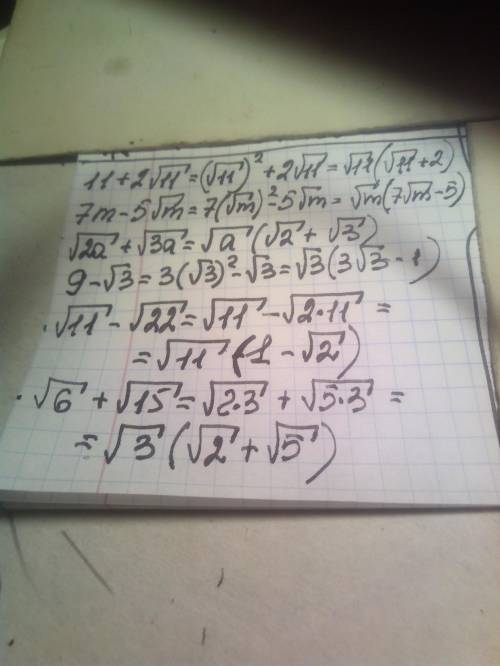 11+2√11=(√11)²+2√11=√11(√11+2)
7m-5√m=7(√m)²-5√m=√m(7√m-5)
√2a+√3a=√a(√2+√3)
9-√3=3(√3)²-√3=√3(3√3-1)
·√11-√22=√11-√2·11=
=√11(1-√2)
·√6+√15=√2·3+√5·3=
=√3(√2+√5)